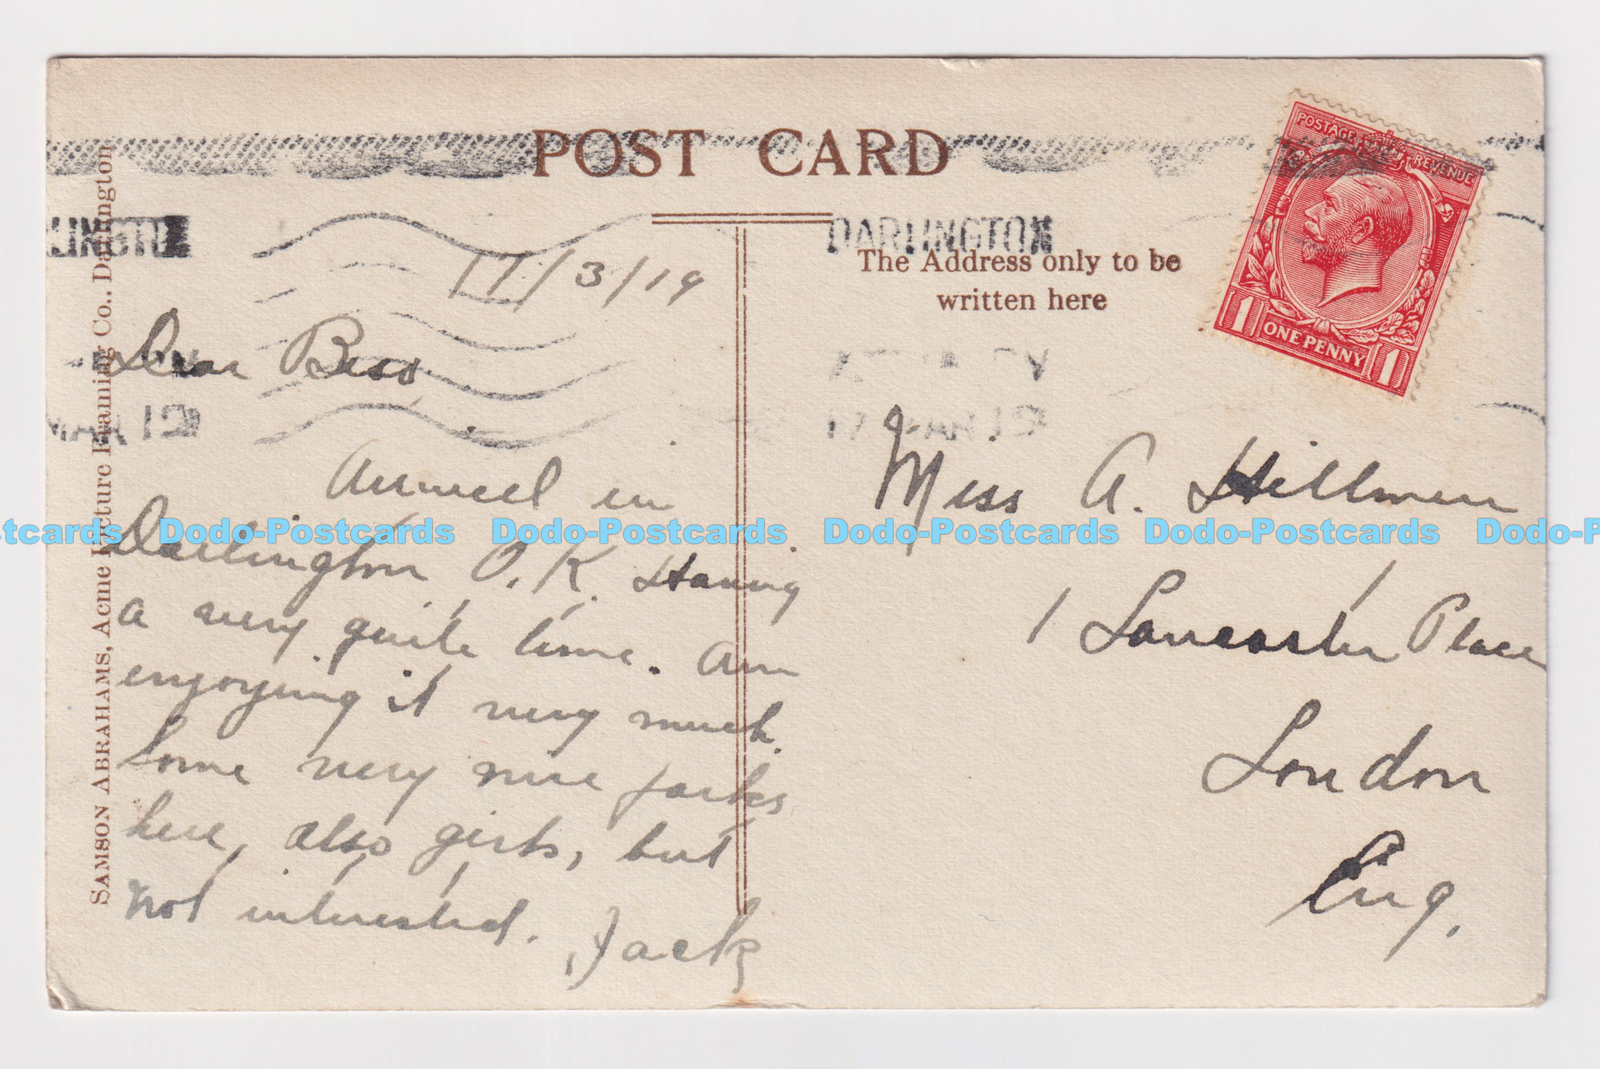 POST CARD
DARLINGTON
17 MAR 19
The Address only to be
written here
POSTAGE REVENUE
1 ONE PENNY 1
LINGTON
MAR 19
SAMSON ABRAHAMS, Acme Picture Framing Co., Darlington
17/3/19
Dear Bess
Arrived in
Darlington O.K. Having
a very quite time. Am
enjoying it very much.
Some very nice parks
here, also girls, but
not interested.
Jack
Miss A. Hillmen
1 Lancaster Place
London
Eng.
tcards Dodo-Postcards Dodo-Postcards Dodo-Postcards Dodo-Postcards Dodo-P